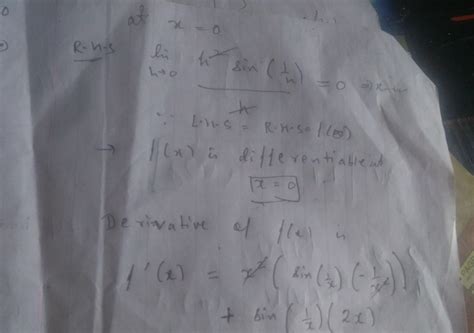 at x = 0
R.H.S lim h→0 h² sin (1/h) / h = 0
∵ L.H.S = R.H.S = f(0)
→ f(x) is differentiable at
x = 0
Derivative of f(x) is
f'(x) = x² ( sin (1/x) ( - 1/x² ) )
+ sin (1/x) (2x)